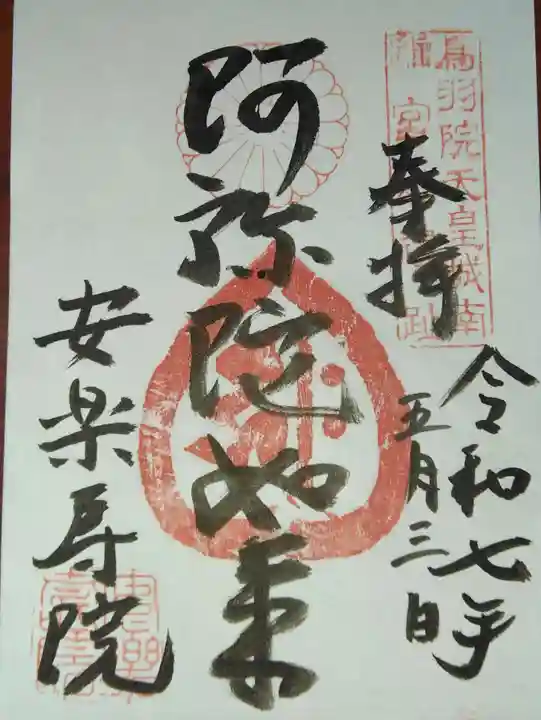 鳥羽院天皇城南
離宮
奉拝
令和七年
五月三日
阿弥陀如来
安楽寿院